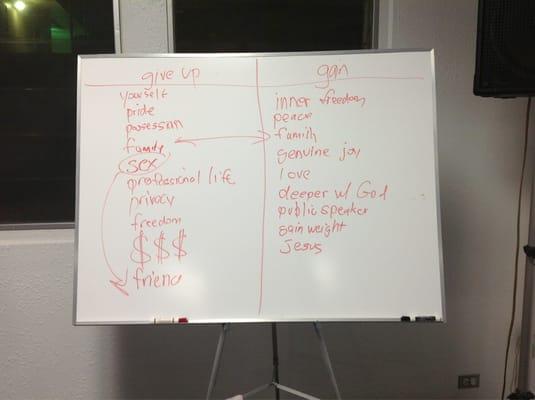 give up
yourself
pride
posession
family
sex
professional life
privacy
freedom
$$$
friend
gan
inner freedom
peace
family
genuine joy
love
deeper w/ God
public speaker
gain weight
Jesus